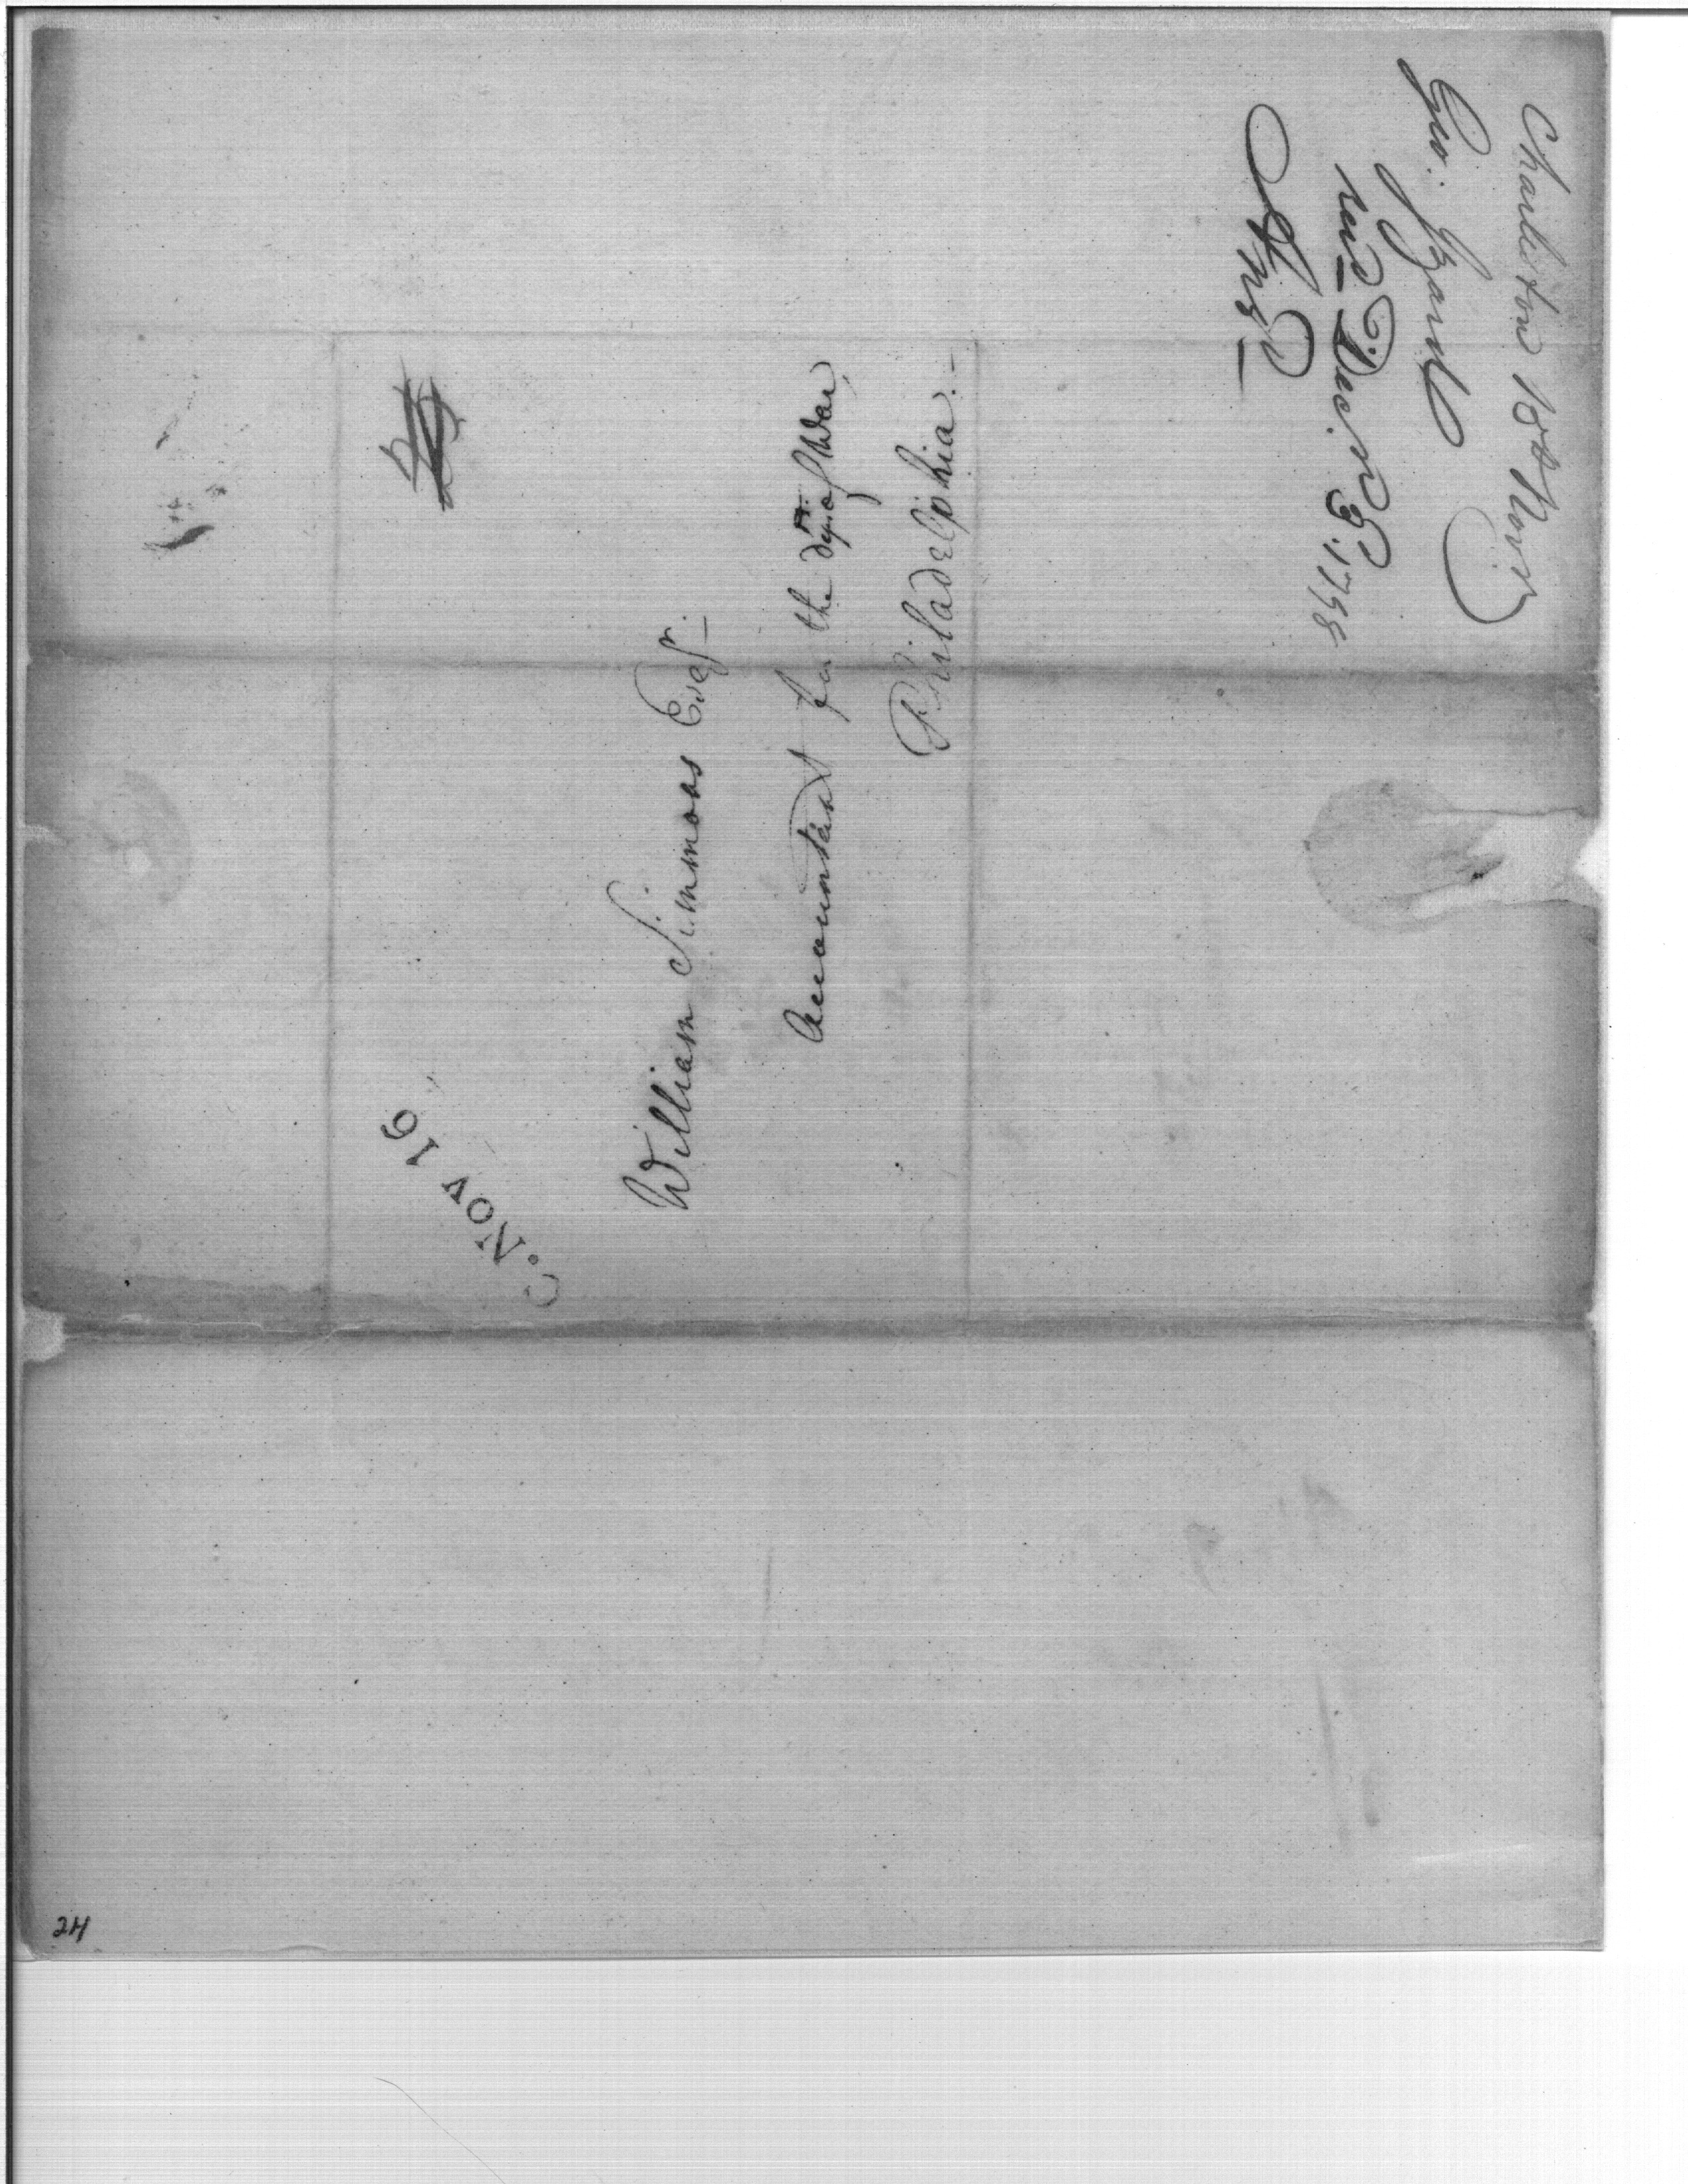 William Simmons Esqr.
Accountant for the Dept. of War,
Philadelphia.-
C. NOV 16
Charleston 15th Novr
Geo: Izard
recd. Decr. 3. 1798
Ansd
24